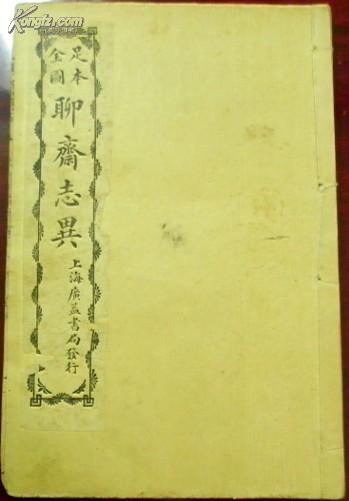 足本
全圖
聊齋志異
上海廣益書局發行
Kongfz.com